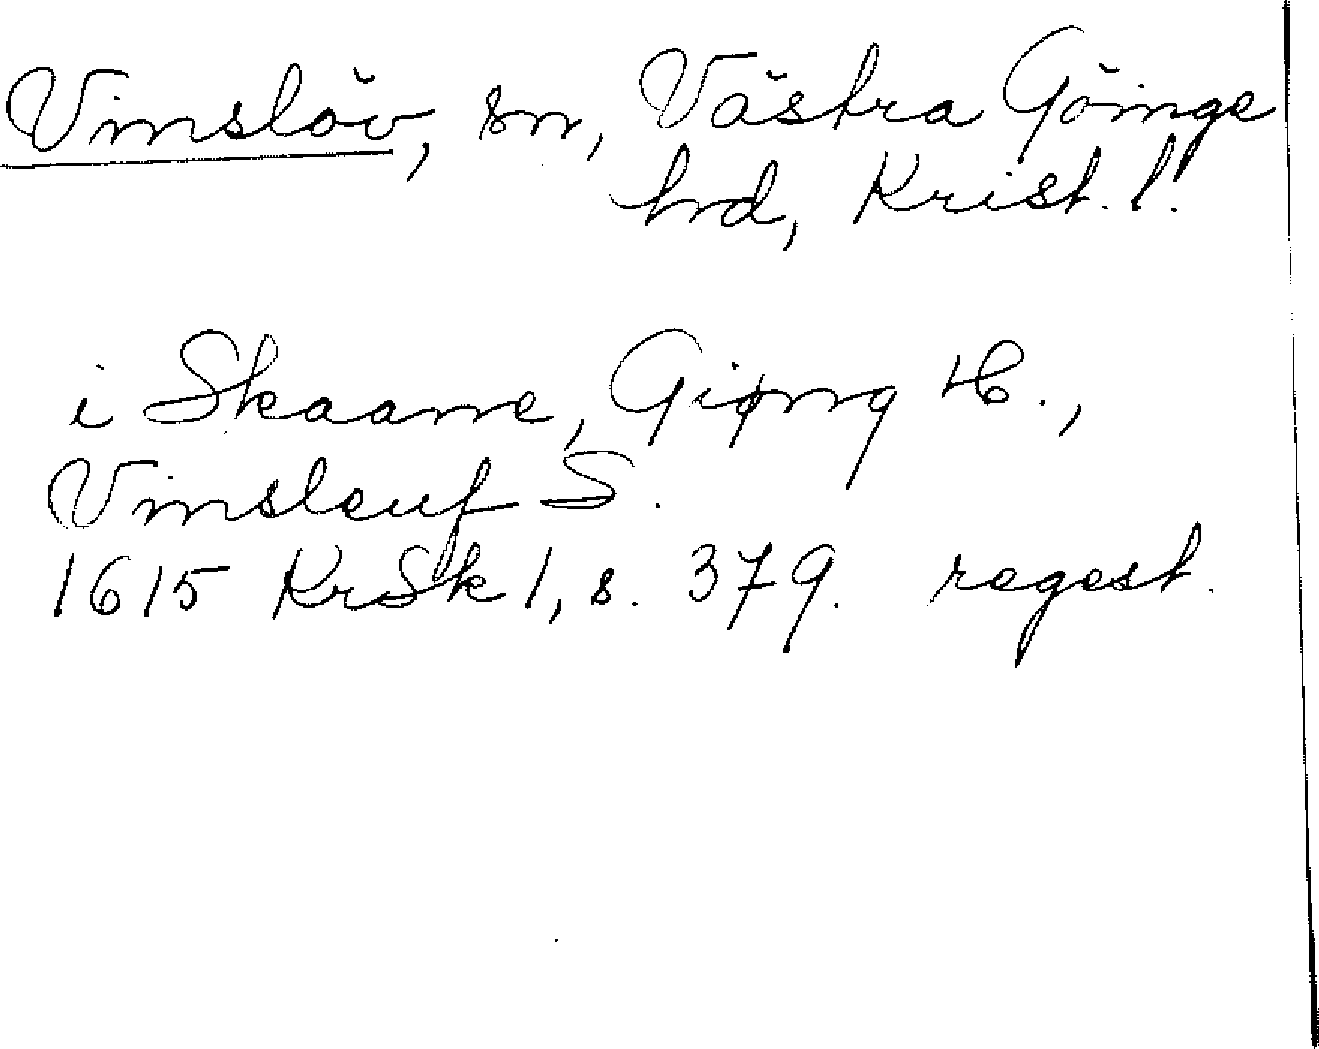 Vinslöv, sn, Västra Göinge
hrd, Krist. l.
i Skaane, Giøng H.,
Vinsleuf S.
1615 KrSk 1, s. 379. regest.